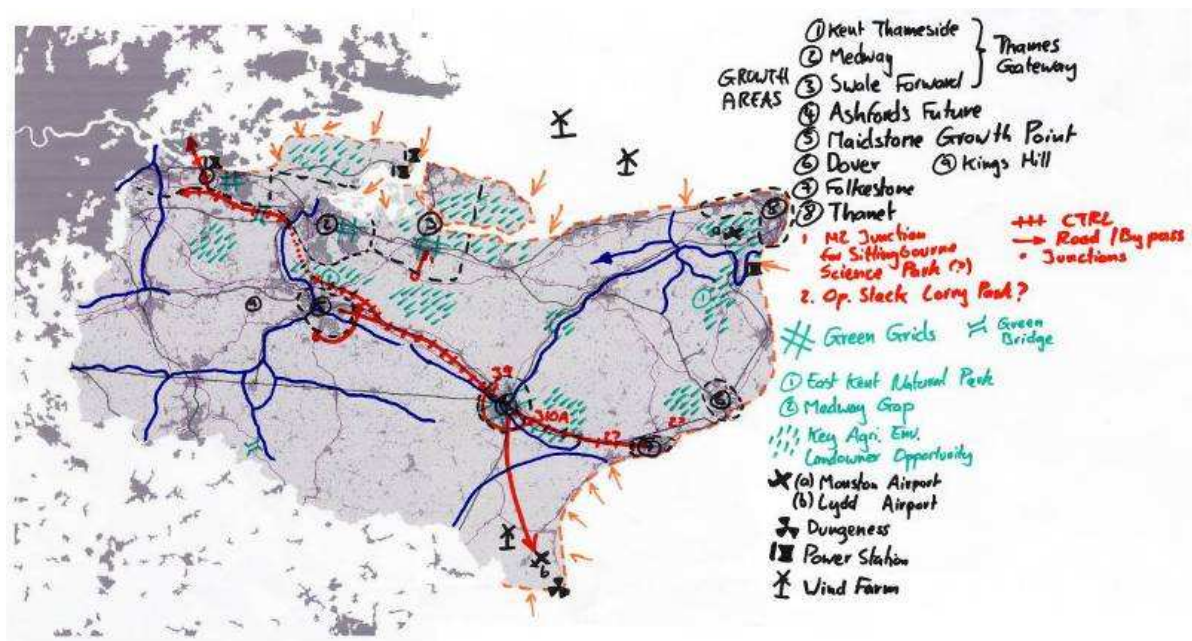 GROWTH AREAS
① Kent Thameside
② Medway
③ Swale Forward
Thames Gateway
④ Ashfords Future
⑤ Maidstone Growth Point
⑥ Dover ⑨ Kings Hill
⑦ Folkestone
⑧ Thanet
1 M2 Junction
for Sittingbourne
Science Park (?)
2. Op. Stack Lorry Park?
CTRL
Road / Bypass
Junctions
Green Grids
Green Bridge
① East Kent Natural Park
② Medway Gap
Key Agri. Env.
Landowner Opportunity
(a) Manston Airport
(b) Lydd Airport
Dungeness
Power Station
Wind Farm
③
⑧
a
①
39
310A
27
b